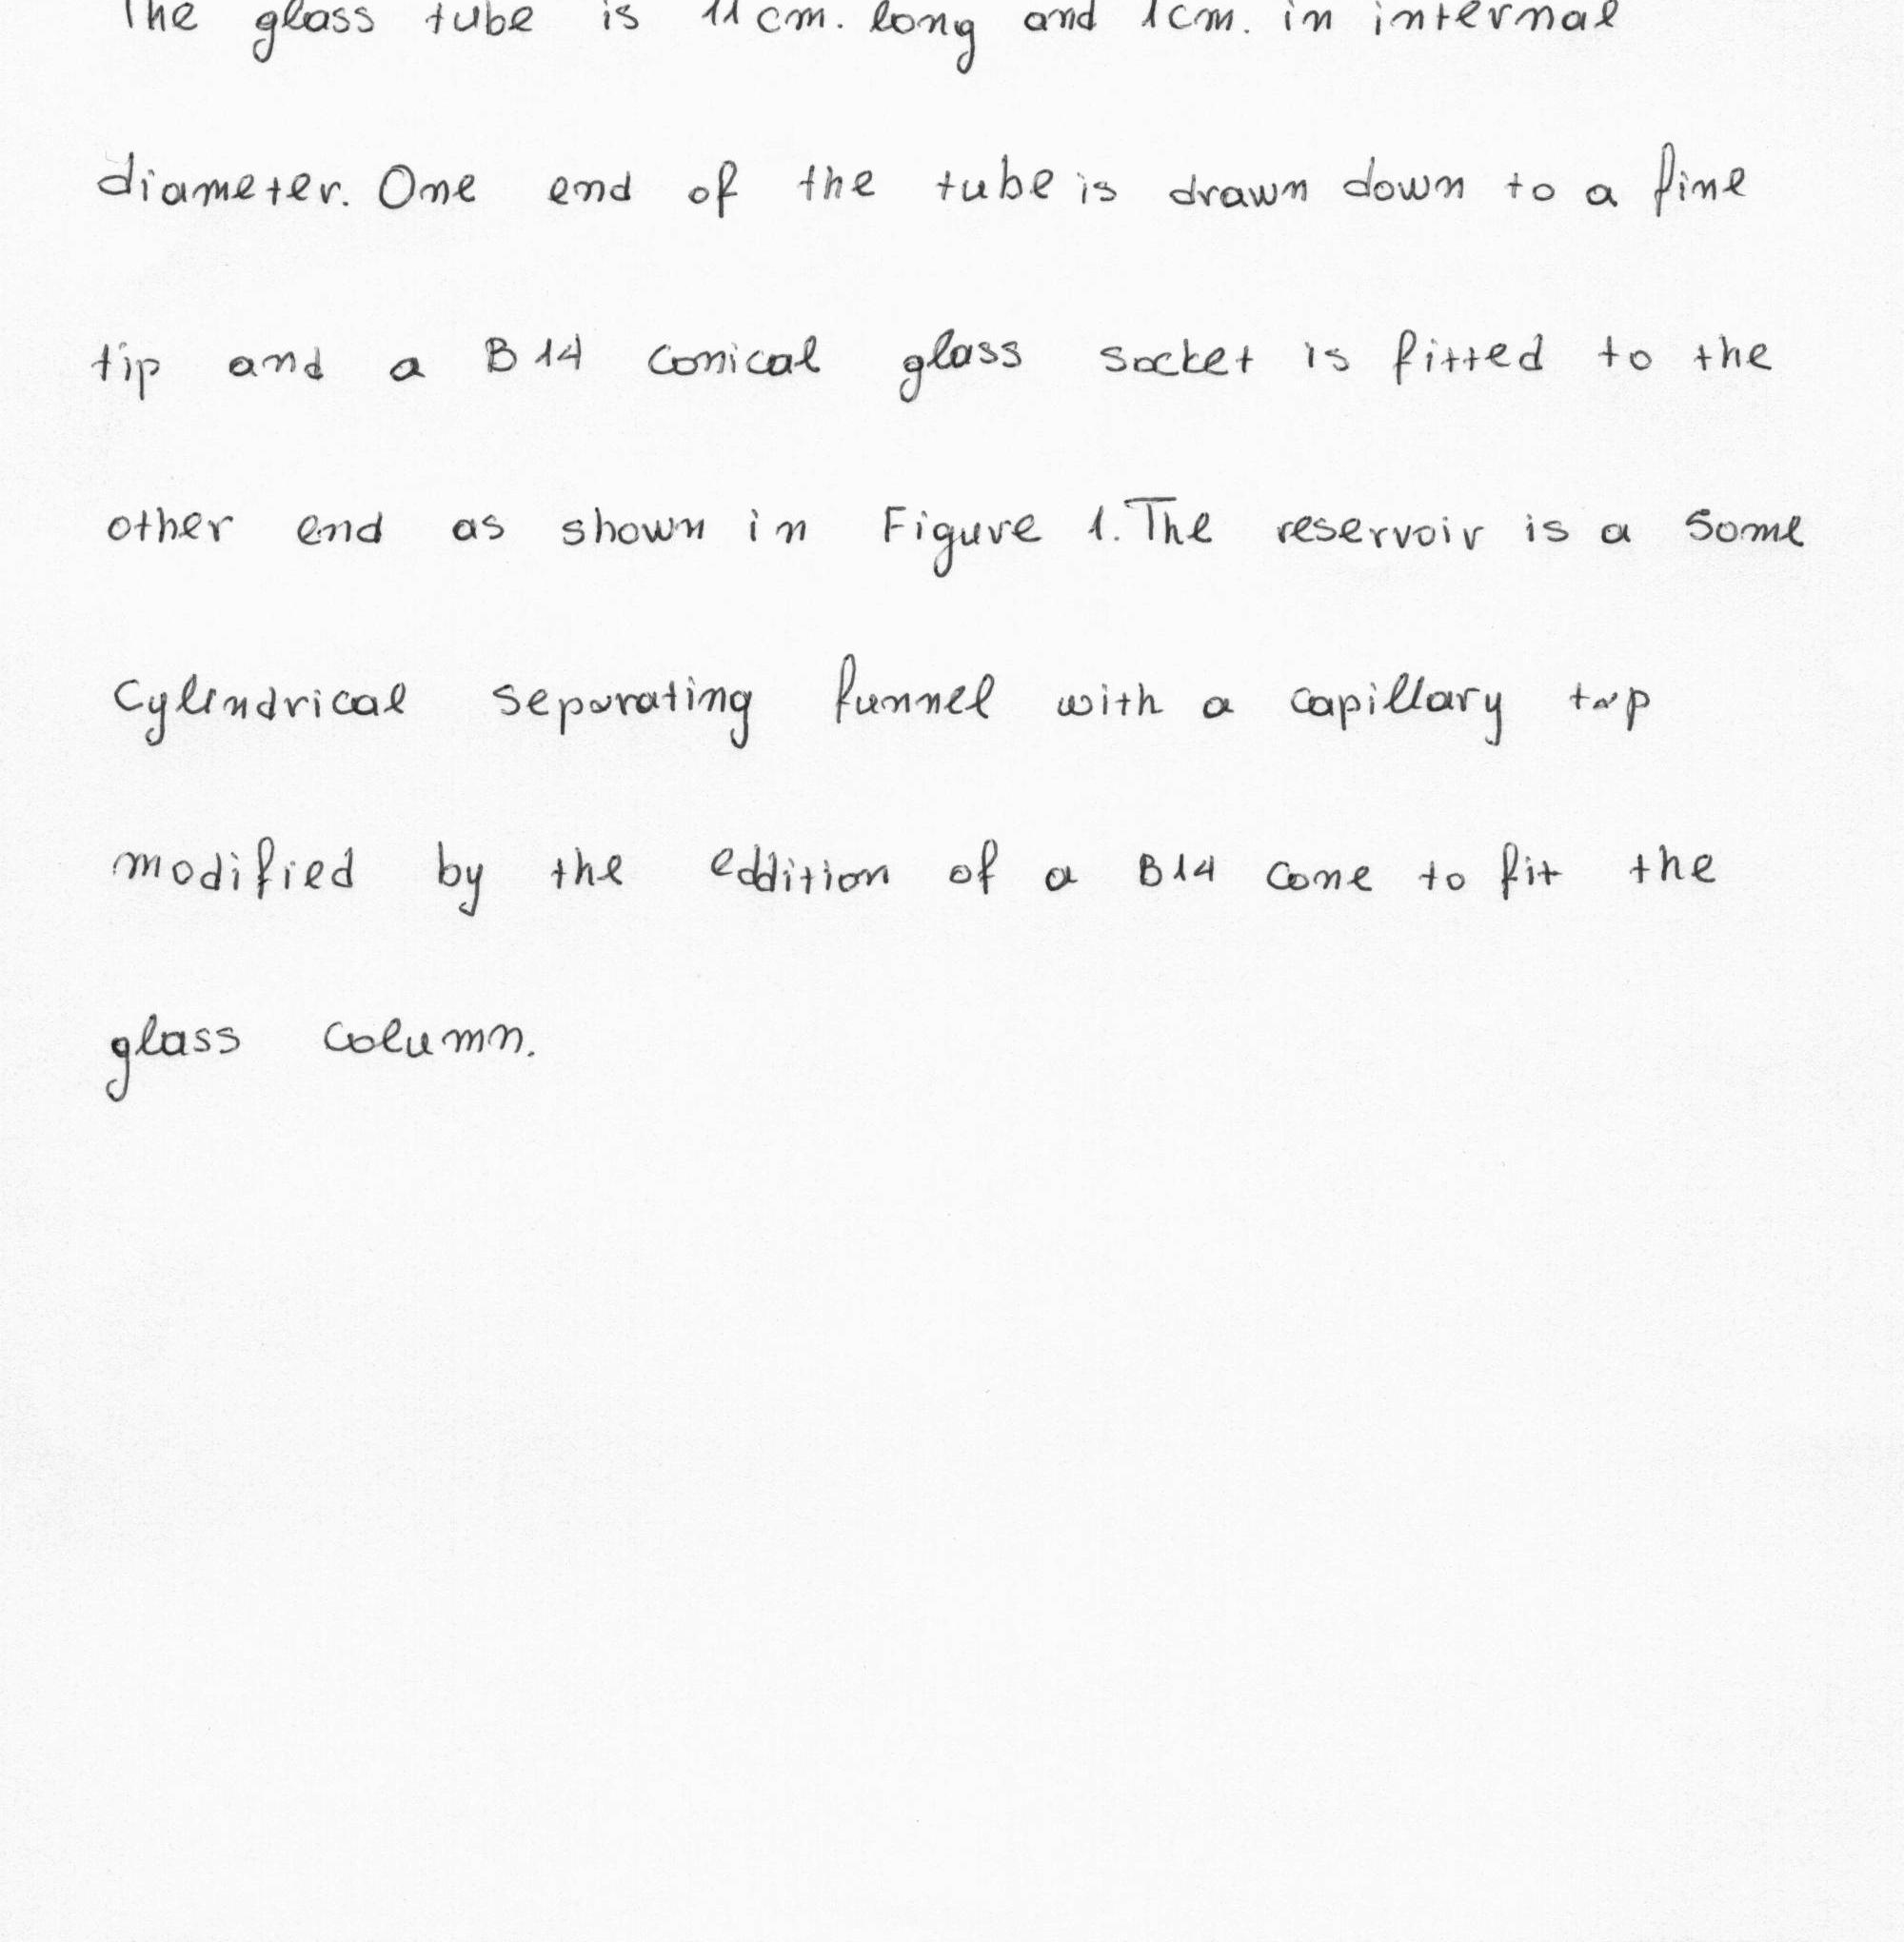 The glass tube is 11 cm. long and 1cm. in internal
diameter. One end of the tube is drawn down to a fine
tip and a B14 conical glass socket is fitted to the
other end as shown in Figure 1. The reservoir is a some
Cylindrical separating funnel with a capillary tap
modified by the eddition of a B14 cone to fit the
glass column.